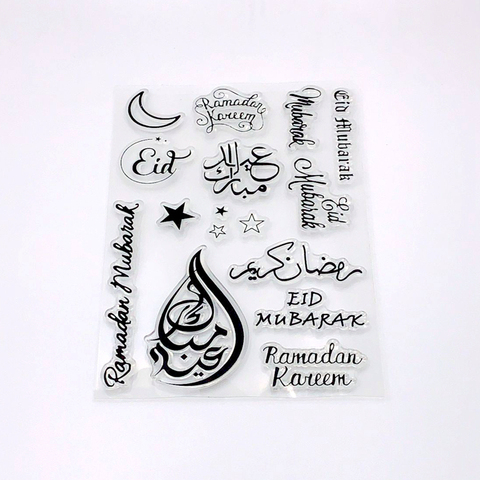 Ramadan
Kareem
Mubarak
Eid Mubarak
Eid
عيد
مبارك
Eid
Mubarak
Ramadan Mubarak
رمضان كريم
عيد
مبارك
EID
MUBARAK
Ramadan
Kareem